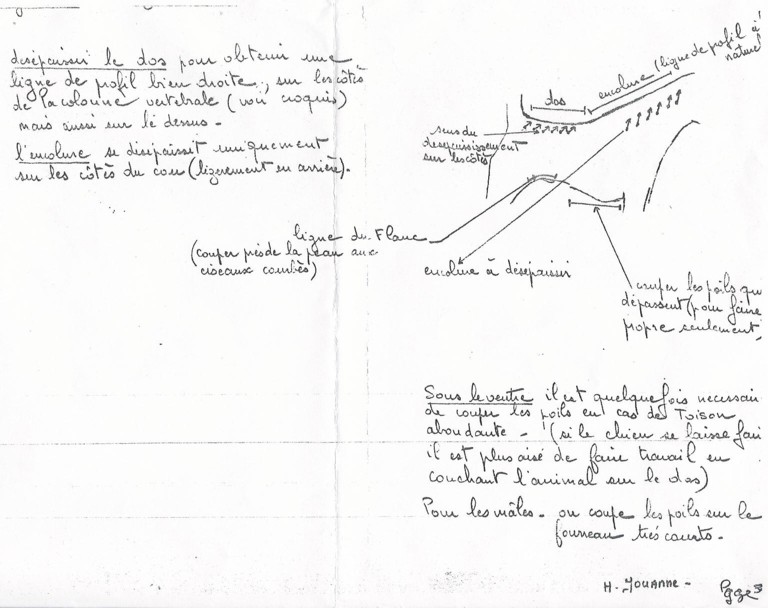 désépaissir le dos pour obtenir une
ligne de profil bien droite, sur les côtés
de la colonne vertébrale (voir croquis)
mais aussi sur le dessus -
l'encolure se désépaissit uniquement
sur les côtés du cou (légèrement en arrière).
ligne du Flanc
(couper près de la peau aux
ciseaux courbés)
dos
encolure (ligne de profil à
nature)
sens du
desepaississement
sur les côtés
encolure à désépaissir
couper les poils qui
dépassent (pour faire
propre seulement)
Sous le ventre il est quelquefois necessair
de couper les poils en cas de Toison
abondante - (si le chien se laisse fai
il est plus aisé de faire travail en
couchant l'animal sur le dos)
Pour les mâles - on coupe les poils sur le
fourreau très courts -
H. JOUANNE -
Page 3